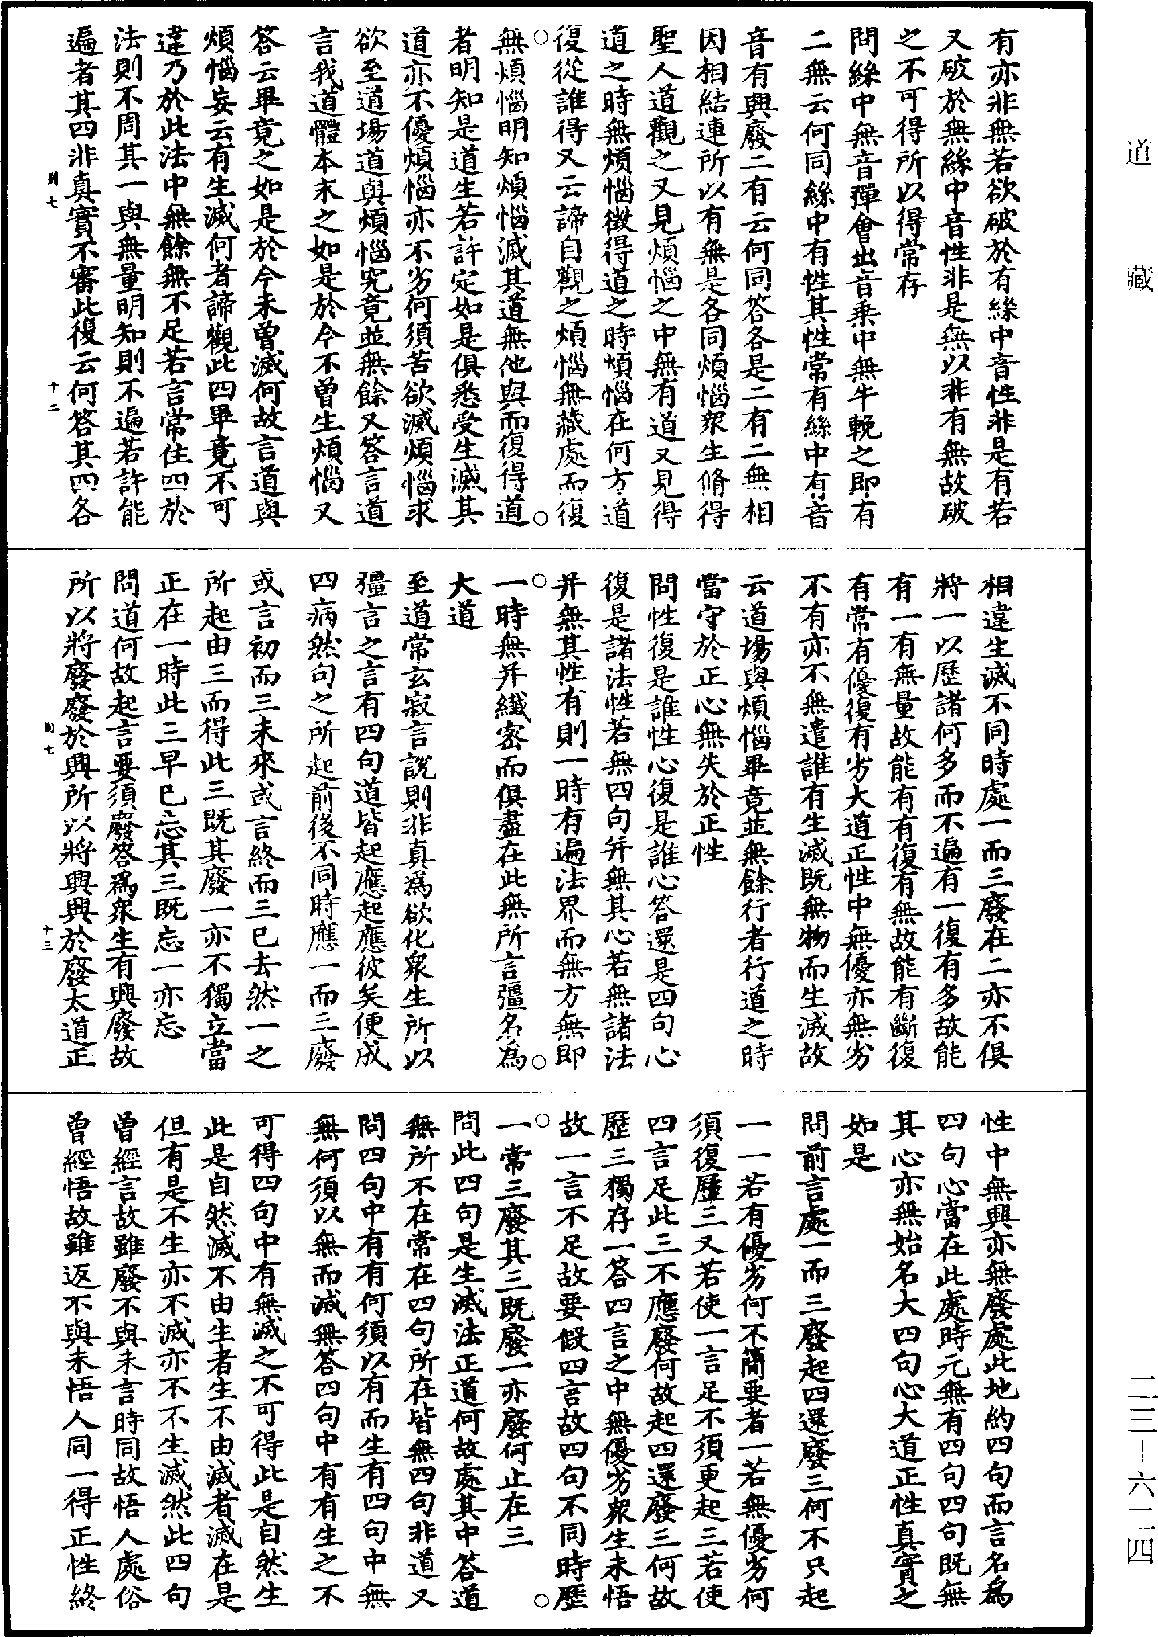 道藏
二三—六一四
有亦非無若欲破於有絲中音性非是有若
又破於無絲中音性非是無以非有無故破
之不可得所以得常存
問絲中無音彈會出音乘中無牛軛之即有
二無云何同絲中有性其性常有絲中有音
音有興廢二有云何同答各是二有二無相
因相結連所以有無是各同煩惱衆生脩得
聖人道觀之又見煩惱之中無有道又見得
道之時無煩惱徵得道之時煩惱在何方道
復從誰得又云諦自觀之煩惱無藏處而復
無煩惱明知煩惱滅其道無他與而復得道
者明知是道生若許定如是俱悉受生滅其
道亦不優煩惱亦不劣何須苦欲滅煩惱求
欲至道場道與煩惱究竟並無餘又答言道
言我道體本末之如是於今不曾生煩惱又
答云畢竟之如是於今未曾滅何故言道與
煩惱妄云有生滅何者諦觀此四畢竟不可
違乃於此法中無餘無不足若言常住四於
法則不周其一與無量明知則不遍若許能
遍者其四非真實不審此復云何答其四各
相違生滅不同時處一而三廢在二亦不俱
將一以歷諸何多而不遍有一復有多故能
有一有無量故能有有復有無故能有斷復
有常有優復有劣大道正性中無優亦無劣
不有亦不無遣誰有生滅既無物而生滅故
云道場與煩惱畢竟並無餘行者行道之時
當守於正心無失於正性
問性復是誰性心復是誰心答還是四句心
復是諸法性若無四句并無其心若無諸法
并無其性有則一時有遍法界而無方無即
一時無并纖密而俱盡在此無所言彊名為
大道
至道常玄寂言說則非真為欲化衆生所以
彊言之言有四句道皆起應起應彼矣便成
四病然句之所起前後不同時應一而三廢
或言初而三未來或言終而三已去然一之
所起由三而得此三既其廢一亦不獨立當
正在一時此三早已忘其三既忘一亦忘
問道何故起言要須廢答為衆生有興廢故
所以將廢廢於興所以將興興於廢太道正
性中無興亦無廢處此地約四句而言名為
四句心當在此處時元無有四句四句既無
其心亦無始名大四句心大道正性真實之
如是
問前言處一而三廢起四還廢三何不只起
一一若有優劣何不簡要者一若無優劣何
須復歷三又若使一言足不須更起三若使
四言足此三不應廢何故起四還廢三何故
歷三獨存一答四言之中無優劣衆生未悟
故一言不足故要假四言故四句不同時歷
一常三廢其三既廢一亦廢何止在三
問此四句是生滅法正道何故處其中答道
無所不在常在四句所在皆無四句非道又
問四句中有有何須以有而生有四句中無
無何須以無而滅無答四句中有有生之不
可得四句中有無滅之不可得此是自然生
此是自然滅不由生者生不由滅者滅在是
但有是不生亦不滅亦不不生滅然此四句
曾經言故雖廢不與未言時同故悟人處俗
曾經悟故雖返不與未悟人同一得正性終